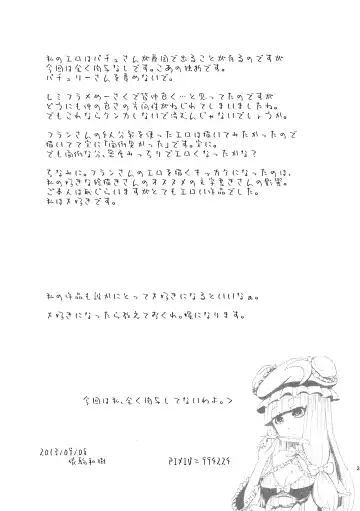 私のエロはパチュさんが最回で出ることが有るのですが
今回は全く関与なしです。こあの独断です。
パチュリーさんを責めないで。
レミフラメめーさくで皆仲良く…と思ってたのですが
どうにも仲の良さの方向性がねじれてしまいましたね。
でもこれならケンカしないで済むんじゃないでしょうか。
フランさんの4人分身を使ったエロは描いてみたかったので
描いてて実に「面倒臭かった」です。実に。
でも面倒な分、密度みっちりでエロくなったかな?
ちなみに。フランさんのエロを描くキッカケになったのは、
私の好きな絵描きさんのオススメの文字書きさんの影響。
ご本人は恥じらいますがとてもエロい作品でした。
私は大好きです。
私の作品も誰かにとって大好きになるといいなぁ。
大好きになったら教えておくれ。糧になります。
今回は私、全く関与してないわよ。>
2013/09/08
PIXIV=994224